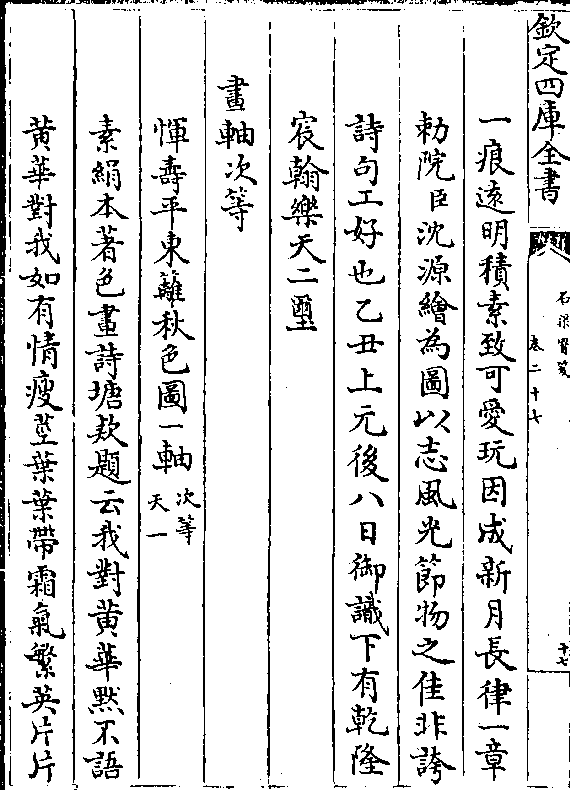 欽定四庫全書
石渠寳笈
卷二十七
十七
一痕遠明積素致可愛玩因成新月長律一章
勅院臣沈源繪為圖以志風光節物之佳非誇
詩句工好也乙丑上元後八日御識下有乾隆
宸翰樂天二璽
畫軸次等
惲壽平東籬秋色圖一軸
次等
天一
素絹本著色畫詩塘款題云我對黄華黙不語
黄華對我如有情瘦莖葉葉帶霜氣繁英片片